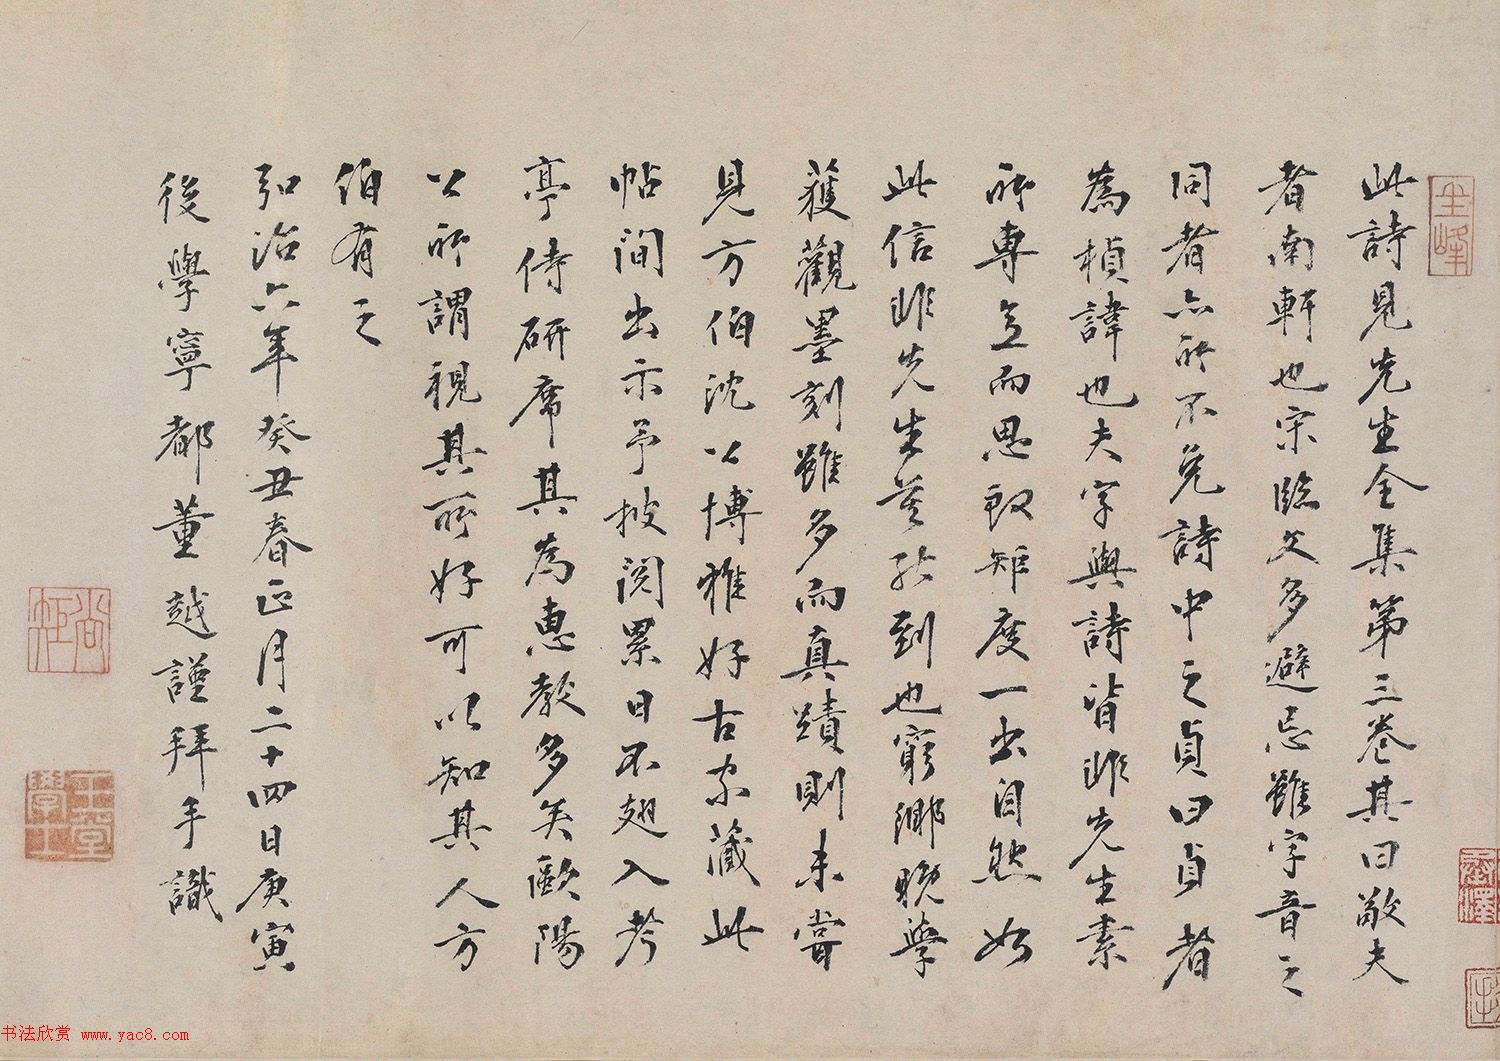 此詩見先生全集第三卷其曰敬夫
者南軒也宋臨文多避忌雖字音之
同者亦所不免詩中之貞曰貞者
為楨諱也夫字與詩皆非先生素
所專意而思致矩度一出自然如
此信非先生莫能到也窮鄉晚學
獲觀墨刻雖多而真蹟則未嘗
見方伯沈公博雅好古家藏此
帖間出示予披閱累日不翅入考
亭侍研席其為惠教多矣歐陽
公所謂視其所好可以知其人方
伯有之
弘治六年癸丑春正月二十四日庚寅
後學寧都董越謹拜手識
圭峰
尚矩
玉堂學士
书法欣赏 www.yac8.com